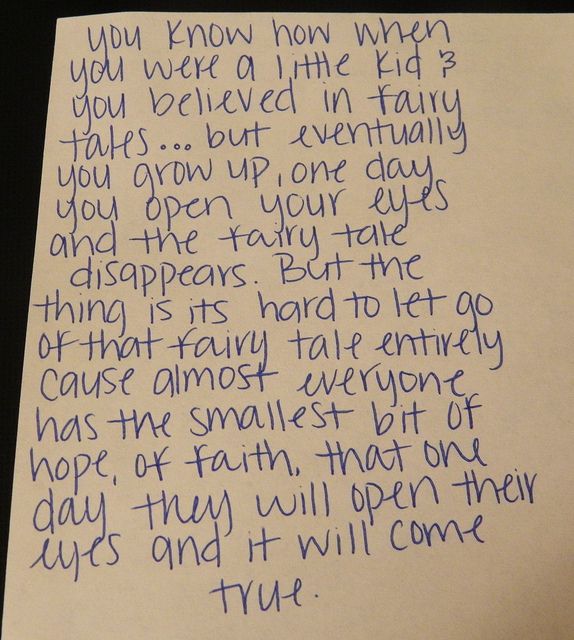 you know how when
you were a little kid &
you believed in fairy
tales... but eventually
you grow up, one day
you open your eyes
and the fairy tale
disappears. But the
thing is its hard to let go
of that fairy tale entirely
cause almost everyone
has the smallest bit of
hope, of faith, that one
day they will open their
eyes and it will come
true.